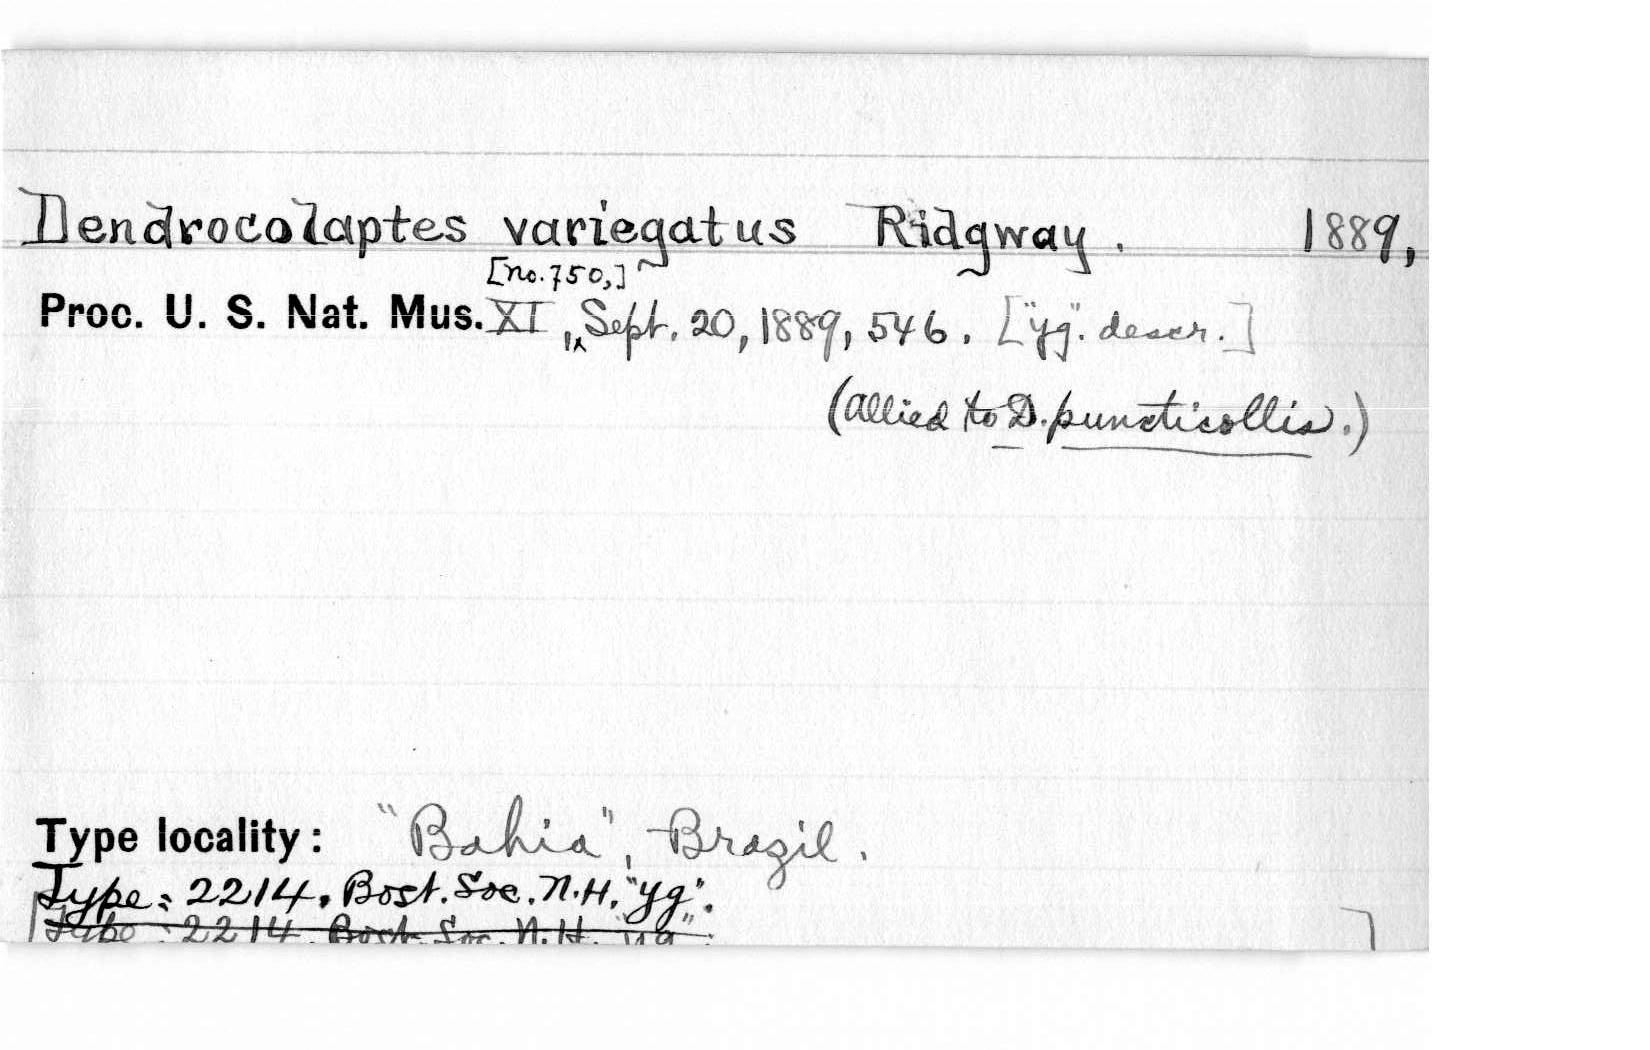 Dendrocolaptes variegatus Ridgway. 1889,
[no.750,]
Proc. U. S. Nat. Mus. XI, Sept. 20, 1889, 546. ["yg". descr.]
(allied to D. puncticollis.)
Type locality: "Bahia", Brazil.
Type: 2214, Bost. Soc. N.H. "yg".
Type: 2214, Bost. Soc. N.H. "yg".